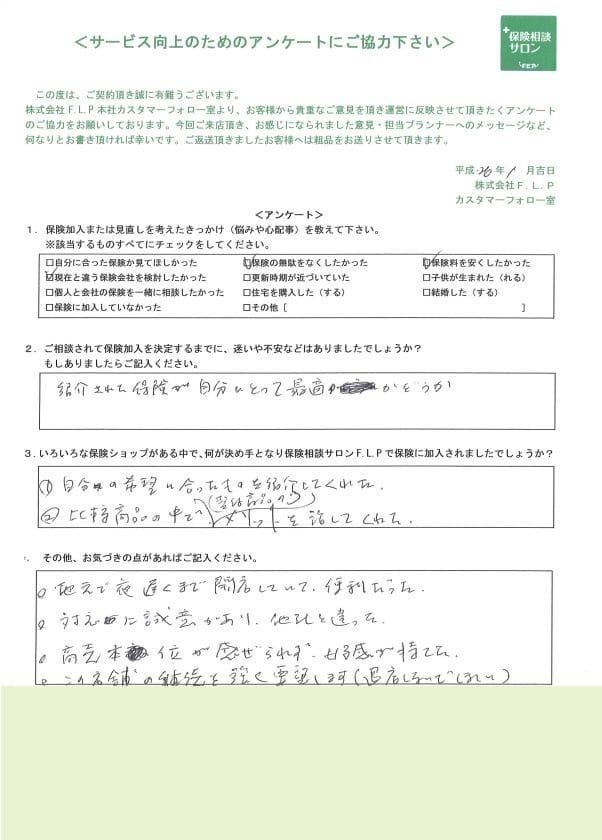 ＜サービス向上のためのアンケートにご協力下さい＞
+保険相談
サロン
F.L.P
この度は、ご契約頂き誠に有難うございます。
株式会社F.L.P本社カスタマーフォロー室より、お客様から貴重なご意見を頂き運営に反映させて頂きたくアンケート
のご協力をお願いしております。今回ご来店頂き、お感じになられました意見・担当プランナーへのメッセージなど、
何なりとお書き頂ければ幸いです。ご返送頂きましたお客様へは粗品をお送りさせて頂きます。
平成 26 年 1 月吉日
株式会社F.L.P
カスタマーフォロー室
＜アンケート＞
1．保険加入または見直しを考えたきっかけ（悩みや心配事）を教えて下さい。
※該当するものすべてにチェックをしてください。
□自分に合った保険か見てほしかった ☑保険の無駄をなくしたかった ☑保険料を安くしたかった
☑現在と違う保険会社を検討したかった □更新時期が近づいていた □子供が生まれた（れる）
□個人と会社の保険を一緒に相談したかった □住宅を購入した（する） □結婚した（する）
□保険に加入していなかった □その他［ ］
2．ご相談されて保険加入を決定するまでに、迷いや不安などはありましたでしょうか？
もしありましたらご記入ください。
紹介された保険が自分にとって最適かどうか
3．いろいろな保険ショップがある中で、何が決め手となり保険相談サロンF.L.Pで保険に加入されましたでしょうか？
① 自分の希望に合ったものを紹介してくれた。
② 比較商品の中で メリットを話してくれた。
．その他、お気づきの点があればご記入ください。
○ 地元で夜遅くまで開店していて、便利だった。
○ 対応に誠意があり、他社と違った。
○ 商売本位が感ぜられず、好感が持てた。
○ この店舗の継続を強く要望します（退店しないでほしい）